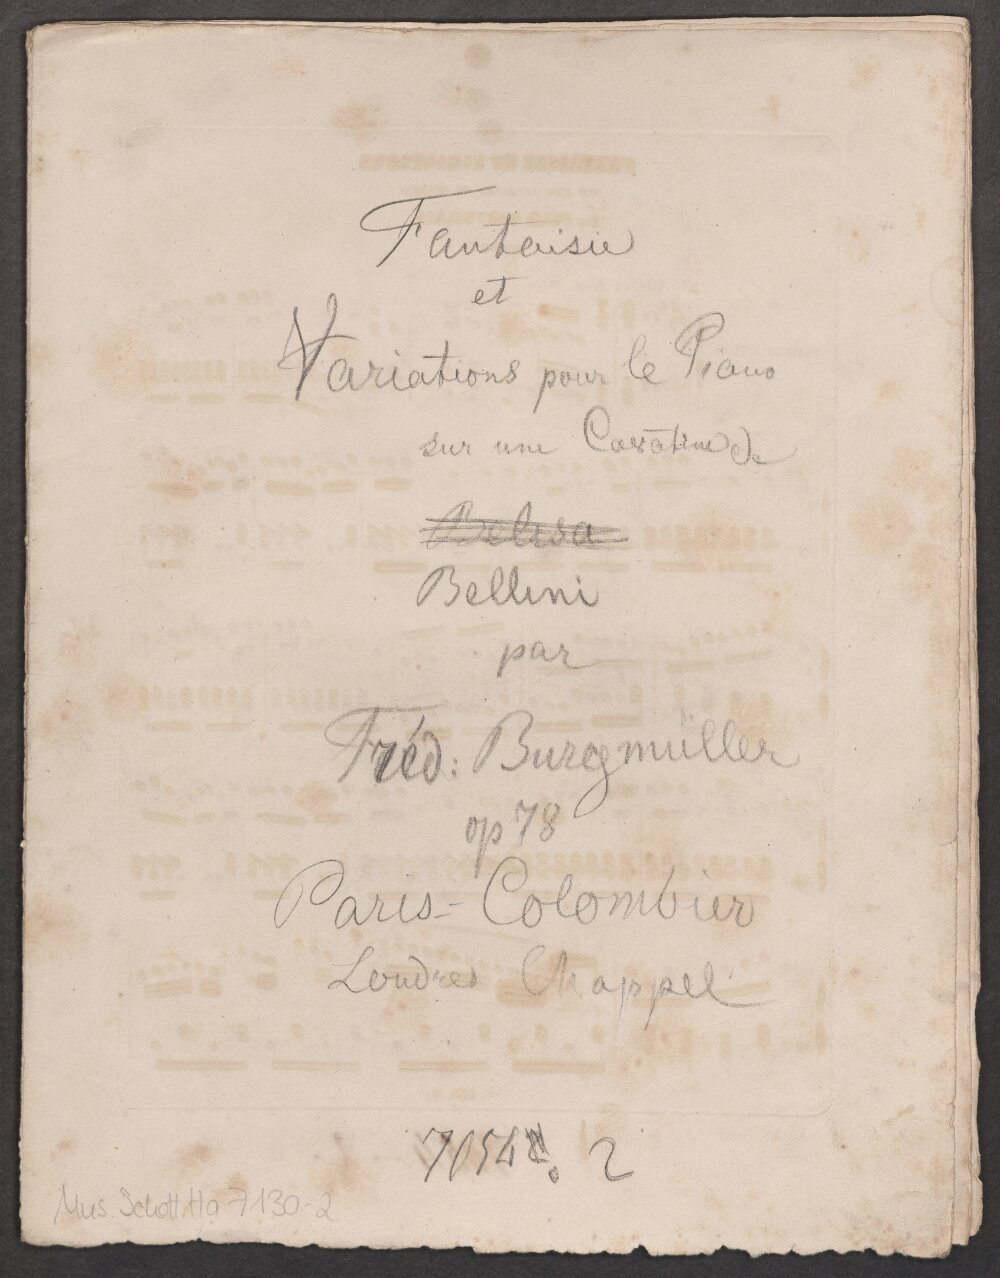 Fantaisie
et
Variations pour le Piano
sur une Cavatine de
Bellini
par
Fréd: Burgmüller
op 78
Paris - Colombier
Londres Chappel
2
Mus. Schott Ha 7130-2